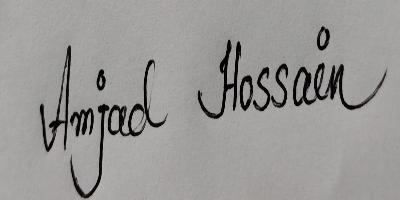 Amjad Hossain